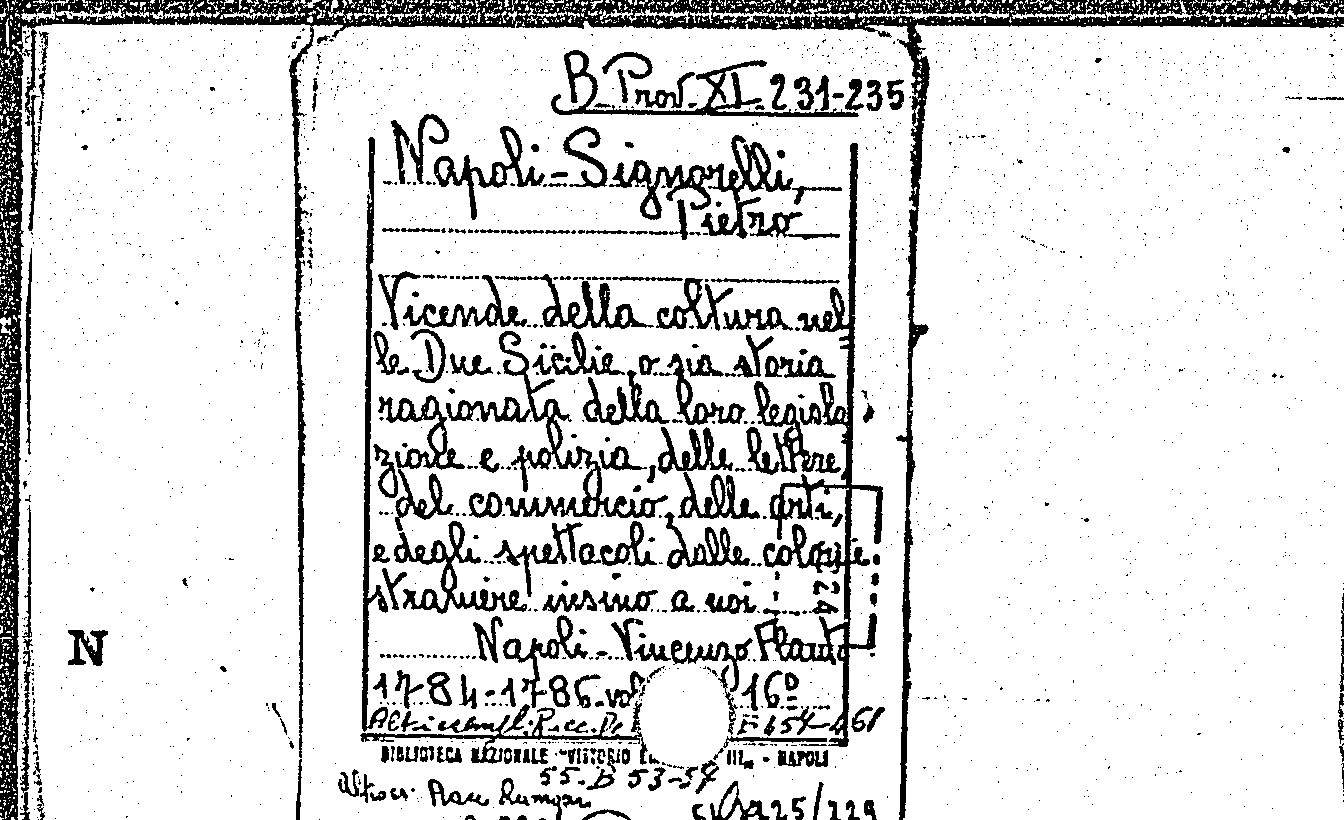 B. Prov. XI. 231-235
Napoli-Signorelli,
Pietro
Vicende della coltura nel
le Due Sicilie, o sia storia
ragionata della loro legisla
zione e polizia, delle lettere,
del commercio, delle arti,
e degli spettacoli dalle colonie
straniere insino a noi.
Napoli-Vincenzo Flauto
N
1784-1786. vol 16º
BIBLIOTECA NAZIONALE "VITTORIO III" - NAPOLI
55. B 53-57